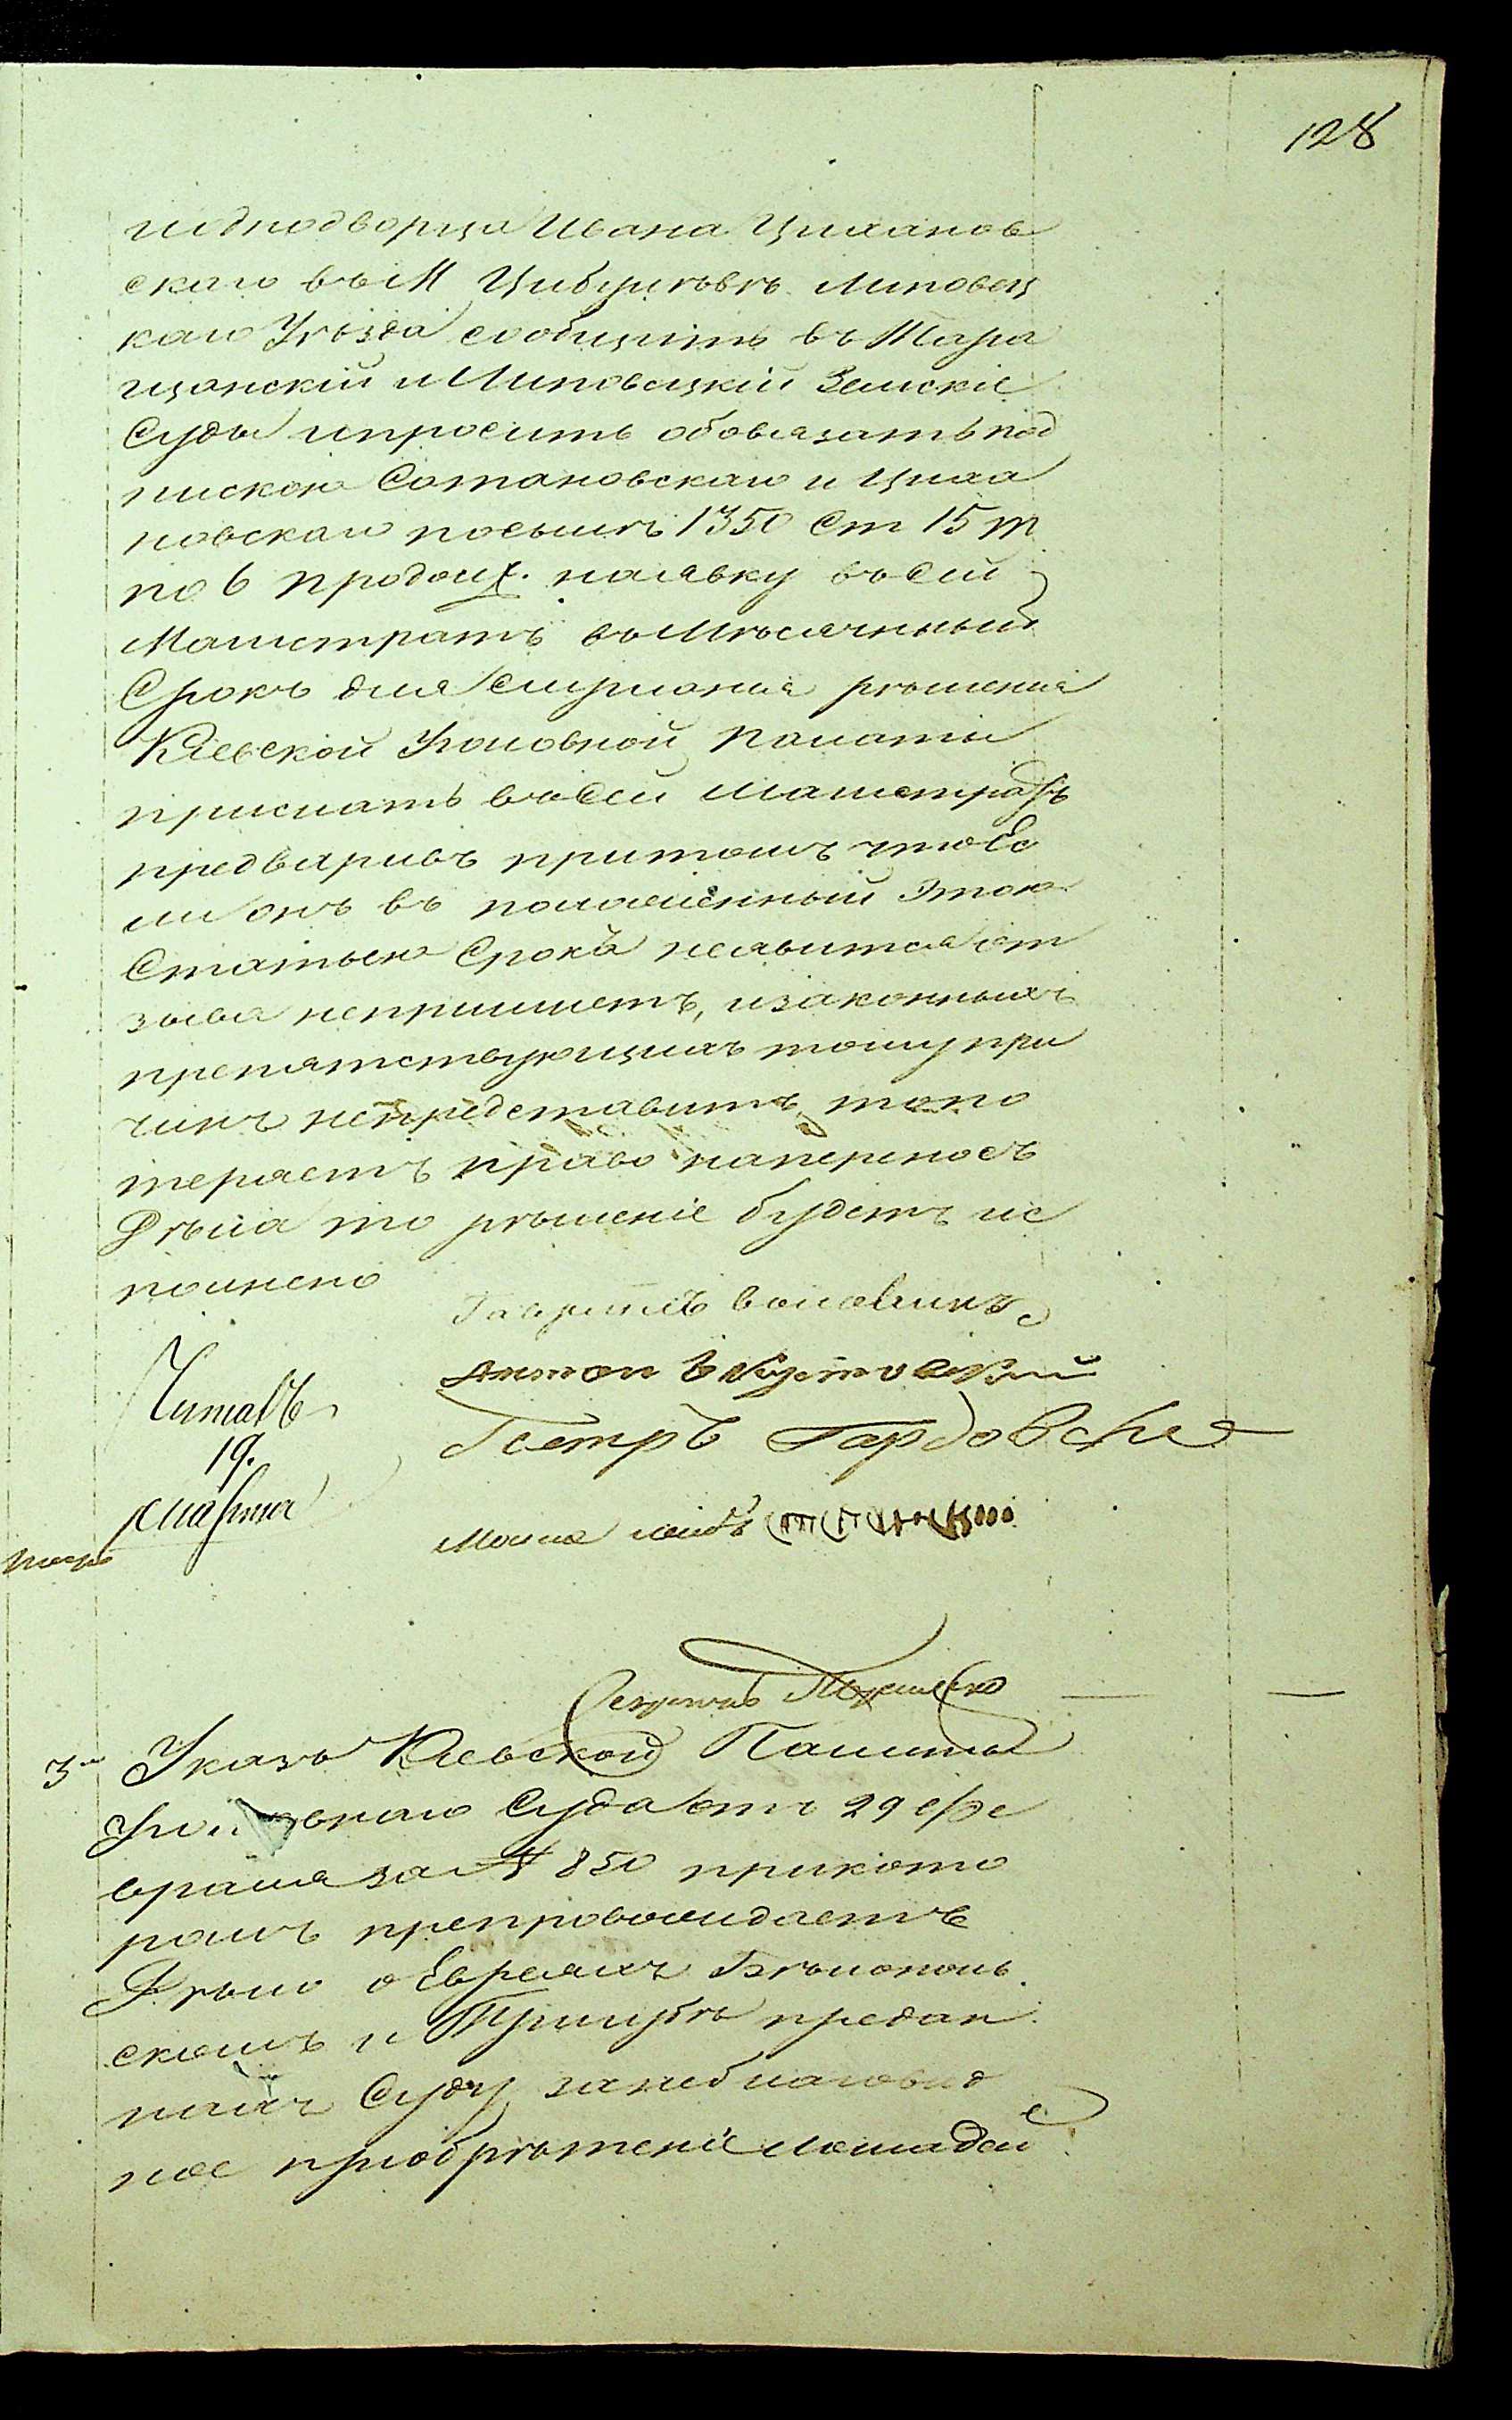 128
иоднодворца Ивана Цихановъ
скаго въ М Цибулевкѣ Липовец
каго Уѣзда сообщить въ Тара
щанскій и Липовецкій Земскіе
Суды и просить обовязать под
пискою Сатановскаго и Циха
новскаго посылкѣ 1350 Ст 15 т
по 6 продолж. на явку въ Сей
Магистратъ въ Мѣсячный
Срокъ для слушанія рѣшенія
Кіевской Уголовной Палаты
прислать въ Сей Магистратъ
предваривъ притомъ что Ес
ли онъ въ положенный этою
Статьею Срокъ неявится от
зыва непришлетъ, и законныхъ
препятствующихъ тому при
чинъ непредставитъ то по
теряетъ право на переносъ
Дѣла то рѣшеніе будетъ ис
полнено
Гавриилъ
Антонъ
Петръ
Читалъ
19.
марта
Секретарь
3 Указъ Кіевской Палаты
Уголовнаго Суда отъ 29 фе
враля за № 850 прикото
ромъ препровождаетъ
Дѣло о Евреяхъ Бѣлополь
скомъ и предан
ныхъ Суду занеблаговид
ное пріобрѣтеніе лошадей